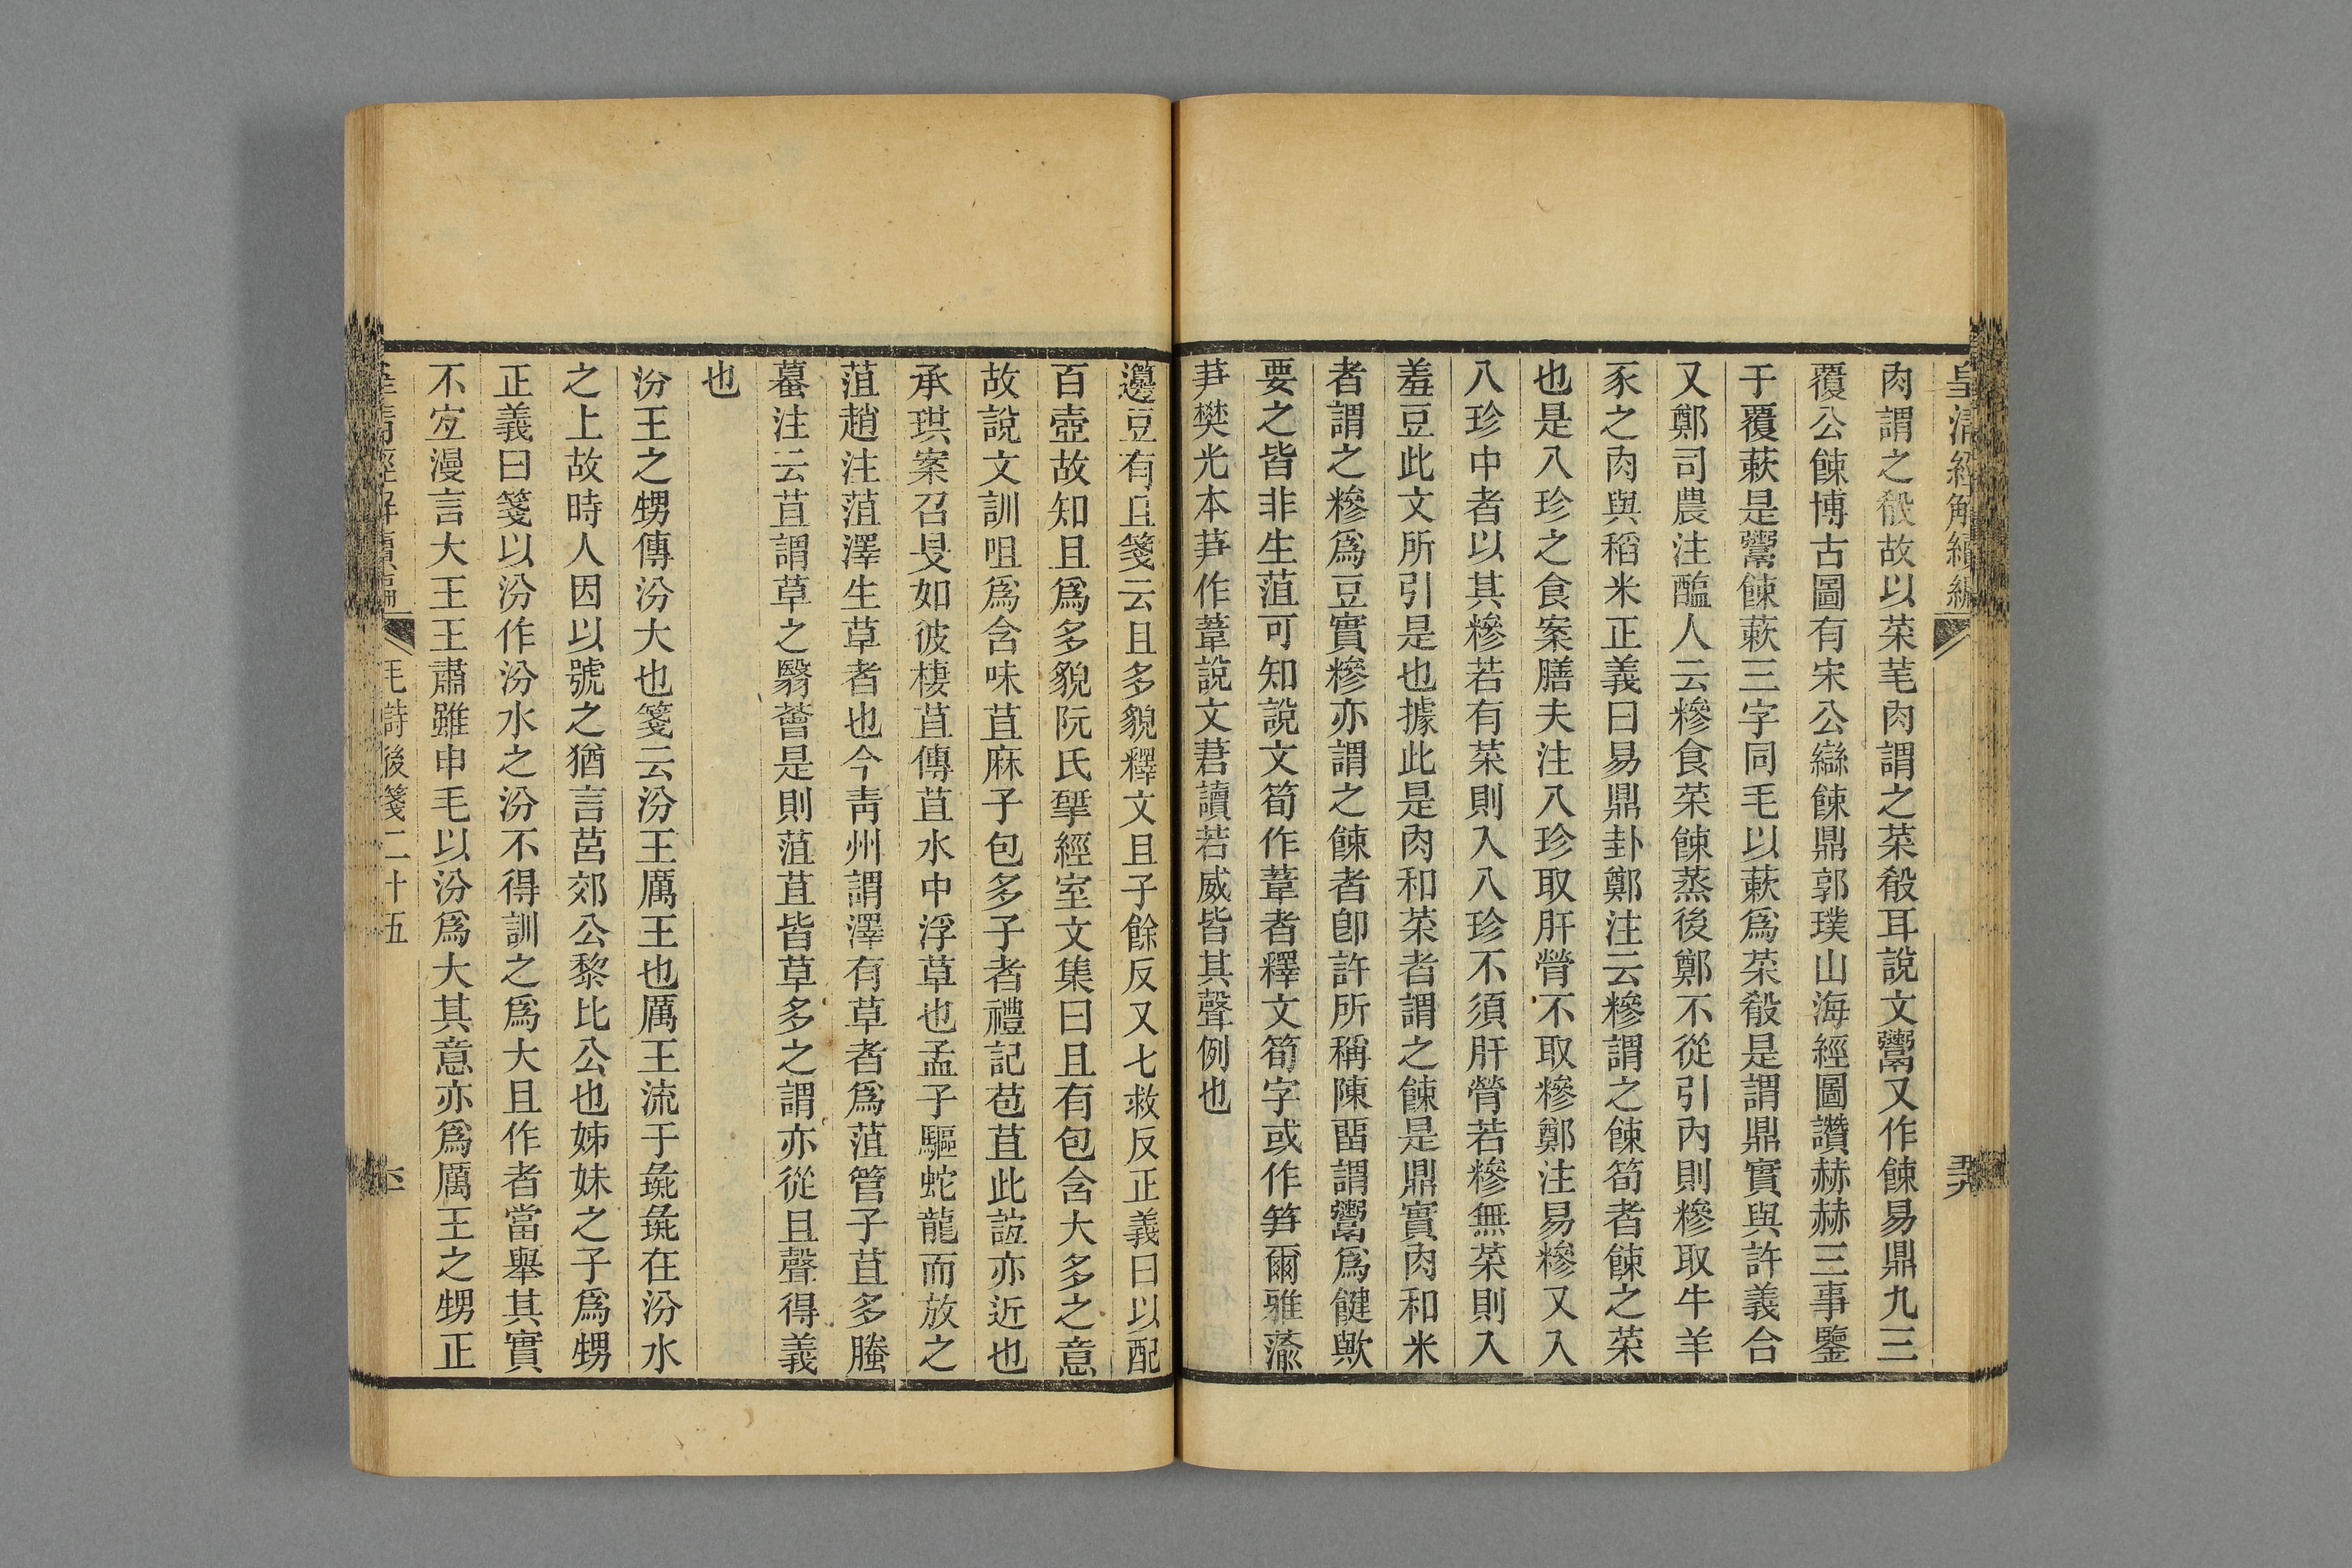 皇清經解續編
肉謂之殽故以菜芼肉謂之菜殽耳說文鬻又作餗易鼎九三
覆公餗博古圖有宋公䜌餗鼎郭璞山海經圖讚赫赫三事鑒
于覆蔌是鬻餗蔌三字同毛以蔌爲菜殽是謂鼎實與許義合
又鄭司農注醢人云糝食菜餗蒸後鄭不從引內則糝取牛羊
豕之肉與稻米正義曰易鼎卦鄭注云糝謂之餗筍者餗之菜
也是八珍之食案膳夫注八珍取肝膋不取糝鄭注易糝又入
八珍中者以其糝若有菜則入八珍不須肝膋若糝無菜則入
羞豆此文所引是也據此是肉和菜者謂之餗是鼎實肉和米
者謂之糝爲豆實糝亦謂之餗者卽許所稱陳畱謂鬻爲健歟
要之皆非生菹可知說文筍作葦者釋文筍字或作笋爾雅蕍
芛樊光本芛作葦說文莙讀若威皆其聲例也
籩豆有且箋云且多貌釋文且子餘反又七救反正義曰以配
百壺故知且爲多貌阮氏揅經室文集曰且有包含大多之意
故說文訓咀爲含味苴麻子包多子者禮記苞苴此誼亦近也
承珙案召旻如彼棲苴傳苴水中浮草也孟子驅蛇龍而放之
菹趙注菹澤生草者也今青州謂澤有草者爲菹管子苴多螣
蟇注云苴謂草之翳薈是則菹苴皆草多之謂亦從且聲得義
也
汾王之甥傳汾大也箋云汾王厲王也厲王流于彘彘在汾水
之上故時人因以號之猶言莒郊公黎比公也姊妹之子爲甥
正義曰箋以汾作汾水之汾不得訓之爲大且作者當舉其實
不宐漫言大王王肅雖申毛以汾爲大其意亦爲厲王之甥正
皇清經解續編 毛詩後箋二十五